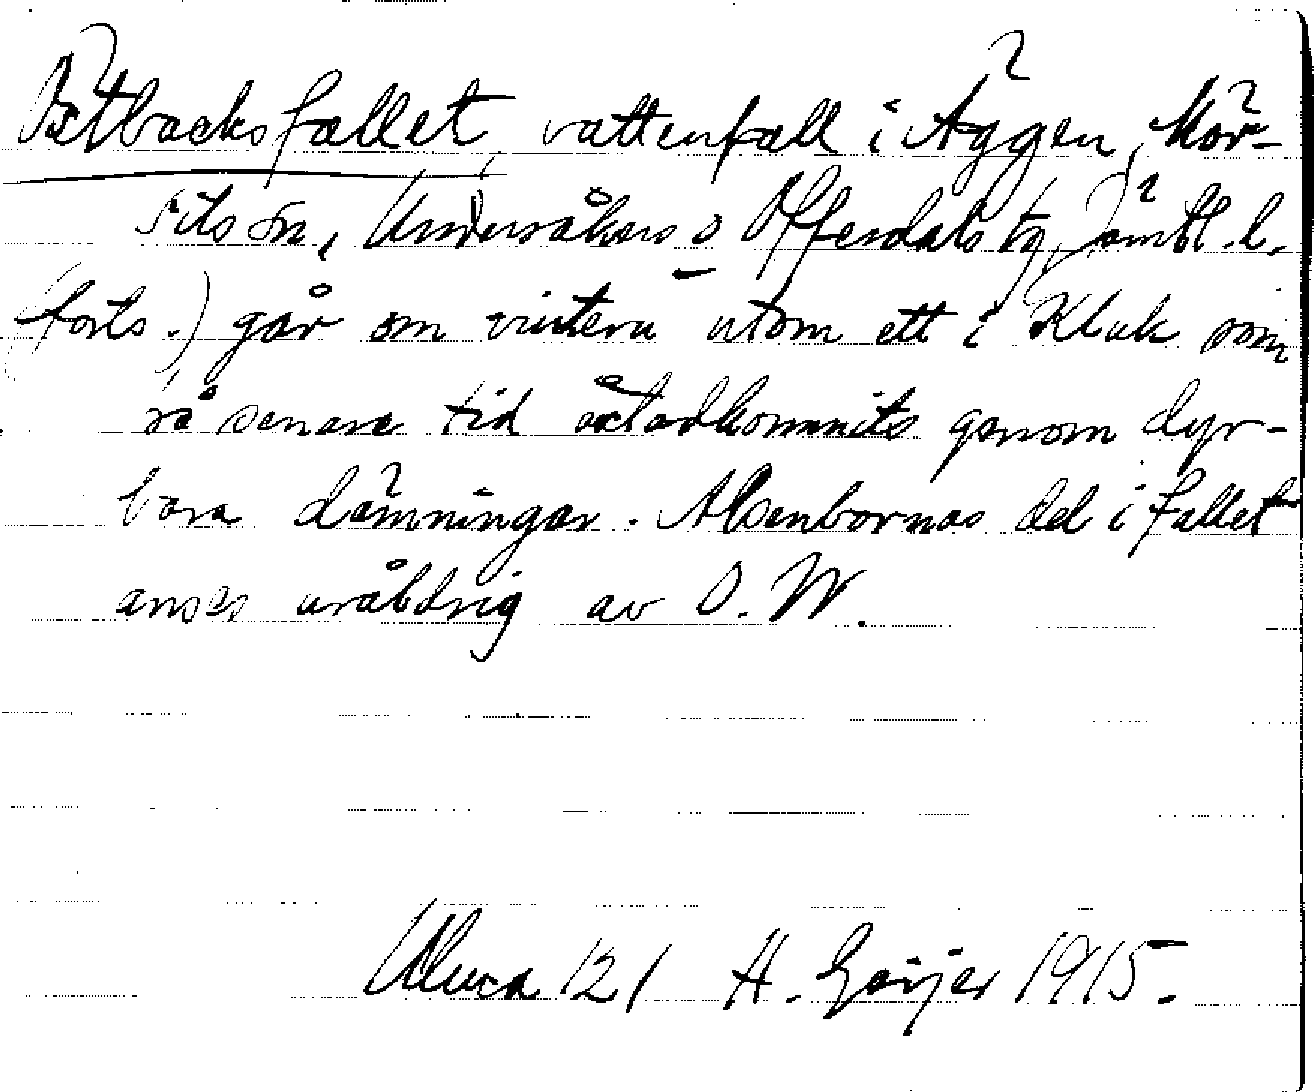 Ätbacksfallet, vattenfall i Äggen, Mör-
sils sn, Undersåkers o Offerdals tg, Jämtl. l.
(forts.) går om vintern utom ett i Kluk som
på senare tid åstadkommits genom dyr-
bara dämningar. Alsenbornas del i fallet
anses uråldrig av O. W.
Uluca 121 H. Geijer 1915.